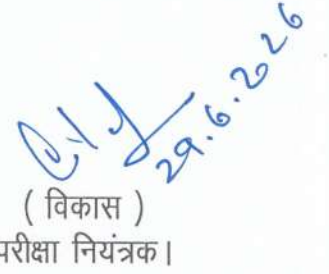 29.6.2026
( विकास )
परीक्षा नियंत्रक।